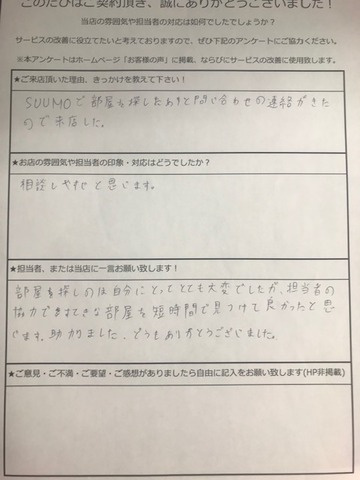 このたびはご契約頂き、誠にありがとうございました！
当店の雰囲気や担当者の対応は如何でしたでしょうか？
サービスの改善に役立てたいと考えておりますので、ぜひ下記のアンケートにご協力ください。
※本アンケートはホームページ「お客様の声」に掲載、ならびにサービスの改善に使用致します。
★ご来店頂いた理由、きっかけを教えて下さい！
SUUMOで部屋を探したありと問い合わせの連絡がきた
ので来店した。
★お店の雰囲気や担当者の印象・対応はどうでしたか？
相談しやすいと思います。
★担当者、または当店に一言お願い致します！
部屋を探しのは自分にとってとても大変でしたが、担当者の
協力ですてきな部屋を短時間で見つけて良かったと思
います。助かりました、どうもありがとうございました。
★ご意見・ご不満・ご要望・ご感想がありましたら自由に記入をお願い致します(HP非掲載)